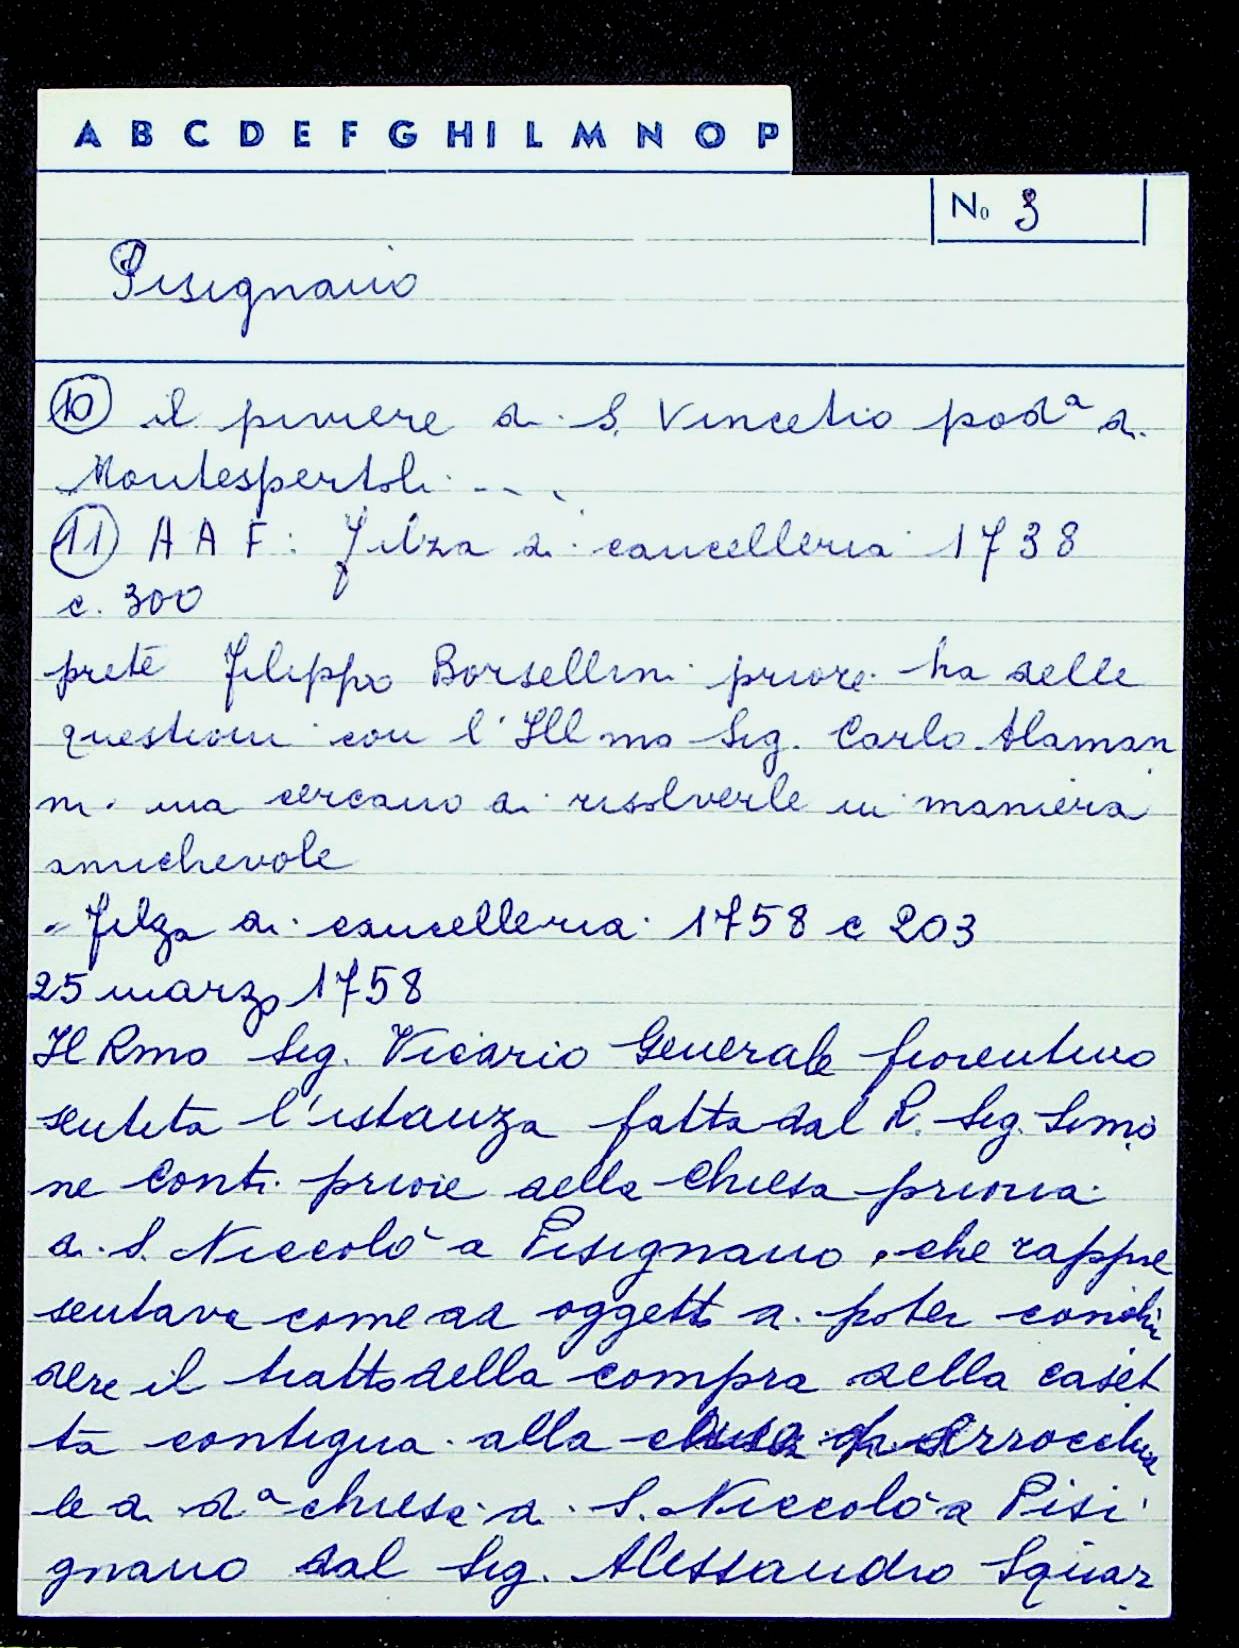 A B C D E F G H I L M N O P
No 3
Pisignano
10 il piviere di S. Vincetio podª di
Montespertoli - - -
11 A A F: Filza di cancelleria 1738
c. 300
prete Filippo Borsellini priore ha delle
questioni con l'Ill mo Sig. Carlo Alaman
ni ma cercano di risolverle in maniera
amichevole
" Filza di cancelleria 1758 c 203
25 marzo 1758
Il Rmo Sig. Vicario Generale fiorentino
sentita l'istanza fatta dal R. Sig. Simo
ne Conti priore della chiesa prioria
di S. Niccolò a Pisignano, che rappre
sentava come ad oggetto di poter conclu
dere il tratto della compra della caset
ta contigua alla chiesa parrocchia
le di dª chiesa di S. Niccolò a Pisi
gnano dal Sig. Alessandro Squar